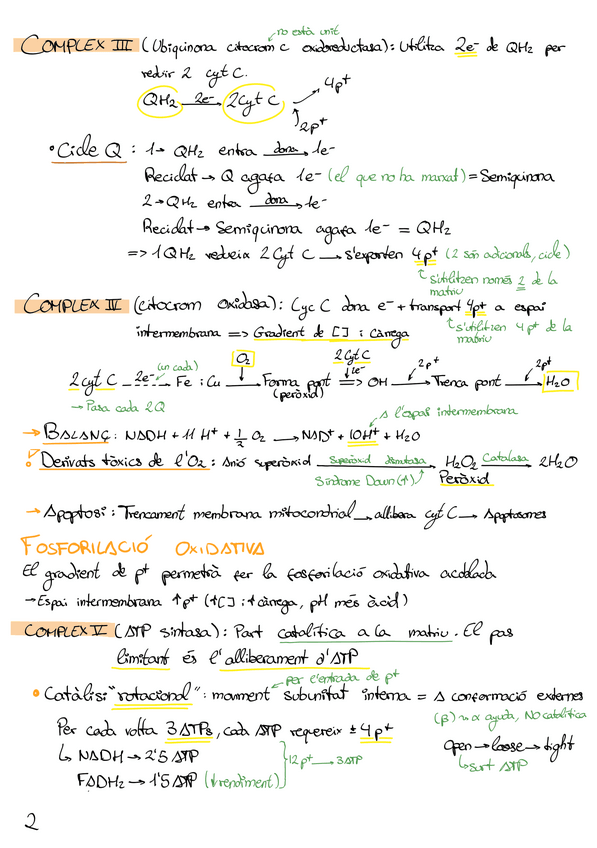 no està unit
COMPLEX III (Ubiquinona citocrom c oxidoreductasa): Utilitza 2e- de QH2 per
reduir 2 cyt C.
QH2 2e- → 2 Cyt C → 4p+
2p+
• Cicle Q : 1→ QH2 entra dona → 1e-
Reciclat → Q agafa 1e- (el que no ha marxat) = Semiquinona
2→ QH2 entra dona → 1e-
Reciclat → Semiquinona agafa 1e- = QH2
=> 1 QH2 redueix 2 Cyt C → s'exporten 4p+ (2 són adicionals, cicle)
s'utilitzen només 2 de la
matriu
COMPLEX IV (citocrom oxidasa): Cyc C dona e- + transport 4p+ a espai
intermembrana => Gradient de [] i càrrega
s'utilitzen 4p+ de la
matriu
(un cada) O2 2 Cyt C 2p+ 2p+
2 cyt C 2e- → Fe : Cu → Forma pont => OH → Trenca pont → H2O
↓1e-
(peròxid)
→ Passa cada 2Q
A l'espai intermembrana
→ BALANÇ: NADH + 11 H+ + 1/2 O2 → NAD+ + 10H+ + H2O
Derivats tòxics de l'O2 : Anió superòxid Superòxid dismutasa → H2O2 Catalasa → 2H2O
Síndrome Down (↑) Peròxid
→ Apoptosi : Trencament membrana mitocondrial → allibera cyt C → Apoptosomes
FOSFORILACIÓ OXIDATIVA
El gradient de p+ permetrà fer la fosforilació oxidativa acoblada
→ Espai intermembrana ↑p+ (↑[] i ↑càrrega, pH més àcid)
COMPLEX V (ATP sintasa): Part catalítica a la matriu. El pas
limitant és l'alliberament d'ATP
per l'entrada de p+
• Catàlisi "rotacional": moviment subunitat interna = Δ conformació externes
(β) ~ α ajuda, NO catalítica
Per cada volta 3 ATPs, cada ATP requereix ± 4p+
Open → loose → tight
↳ NADH → 2'5 ATP
↳ surt ATP
12p+ → 3 ATP
FADH2 → 1'5 ATP (↓rendiment)
2